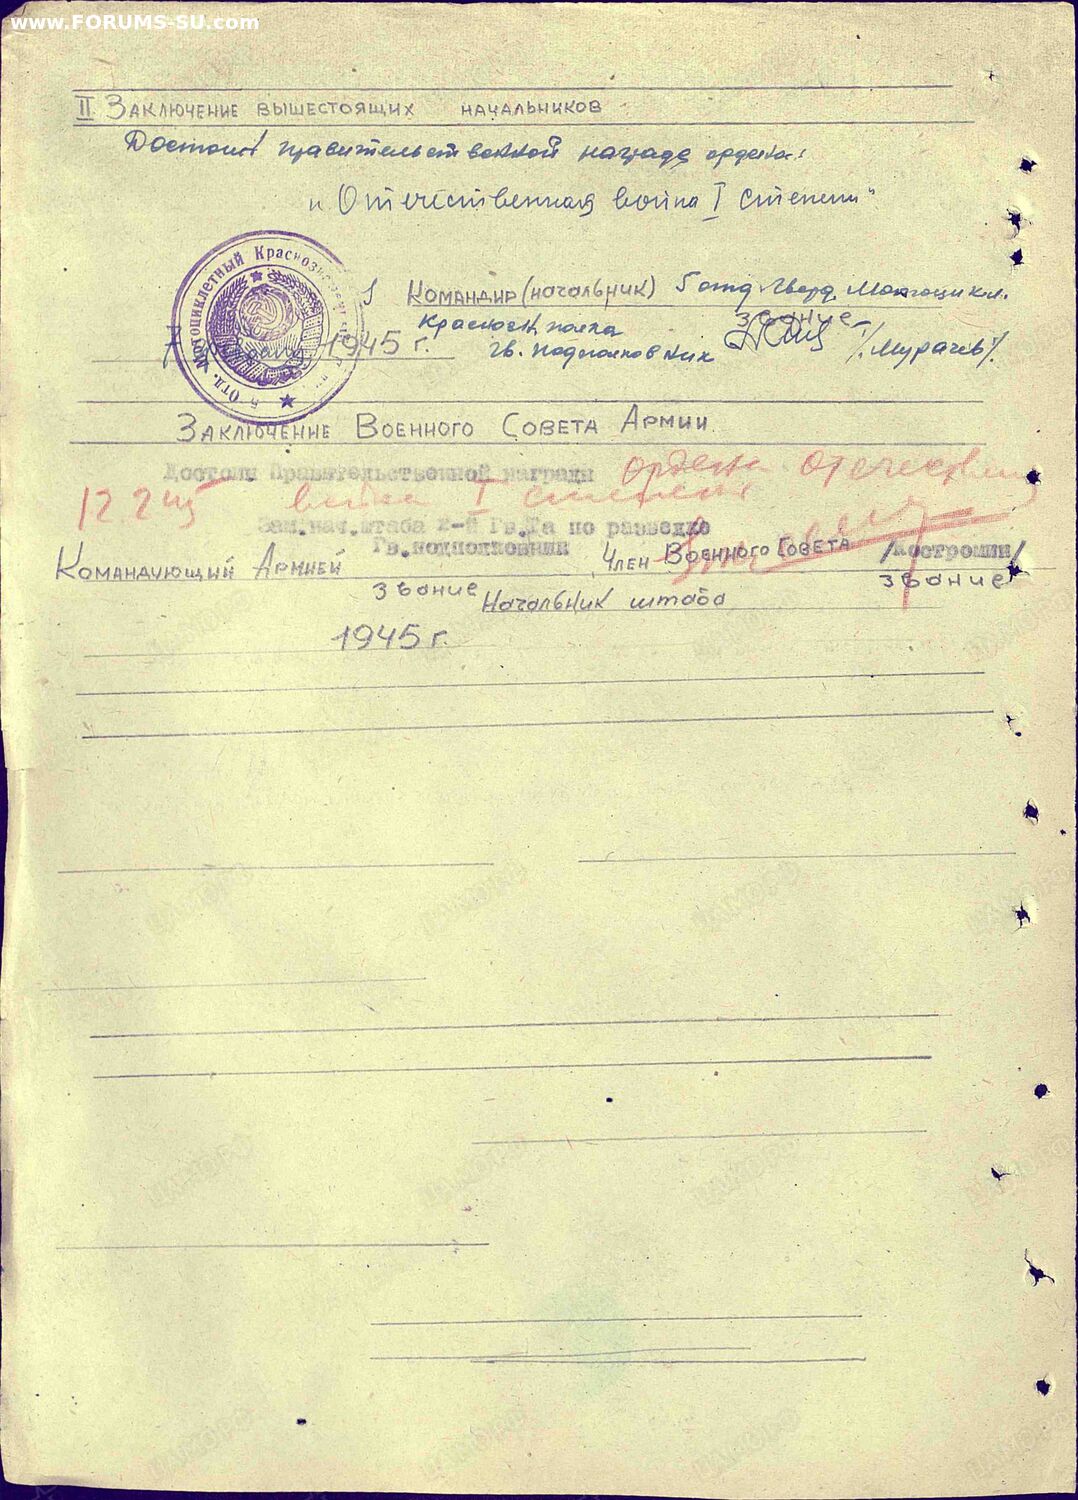 www.FORUMS-SU.com
II Заключение вышестоящих начальников
Достоин правительственной награде ордена:
„Отечественная война I степени"
Командир (начальник) 5 отд. Гвард. Мотоцикл.
Краснозн. полка звание
7 1945 г. гв. подполковник /Мурачев/.
5 Отд. Мотоциклетный Краснозн
Заключение Военного Совета Армии
Достоин Правительственной награды ордена отечествен
12.2.45 война I степени
Зам.нач.штаба 2-й Гв.ТА по разведке
Гв.подполковник /Костромин/
Командующий Армией Член Военного Совета
звание звание
Начальник штаба
1945 г.